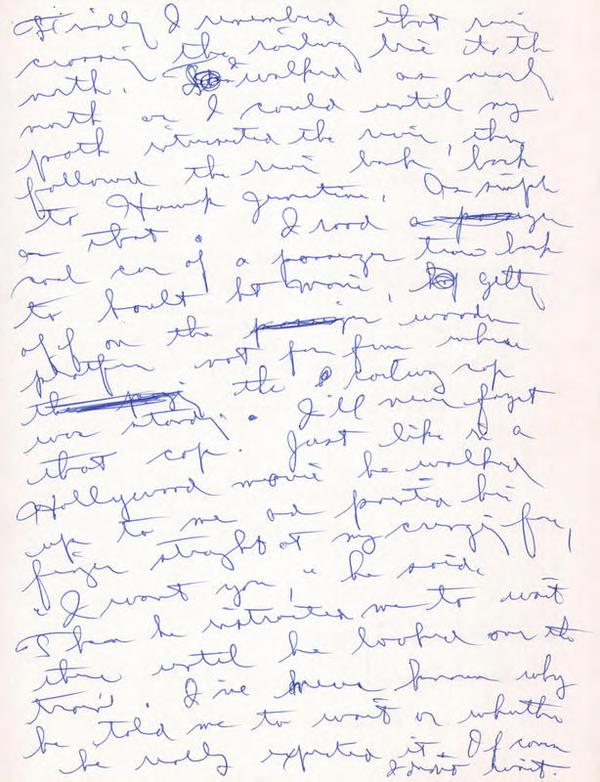 Finally I remembered that river
crossing the railway line to the
north. I walked as nearly
north as I could until my
path intersected the river, then
followed the river back, back
to Hawk Junction. As simple
as that. I rood a
coal car of a passenger train back
to hoult ste marie, getting
off on the wooden
platform not far from where
the railway cop
was standing. I'll never forget
that cop. Just like in a
Hollywood movie he walked
up to me and pointed his
finger straight at my cringing face,
"I want you," he said.
Then he instructed me to wait
there until he looked over the
train. I've never known why
he told me to wait or whether
he really expected it. Of course
I didn't wait.